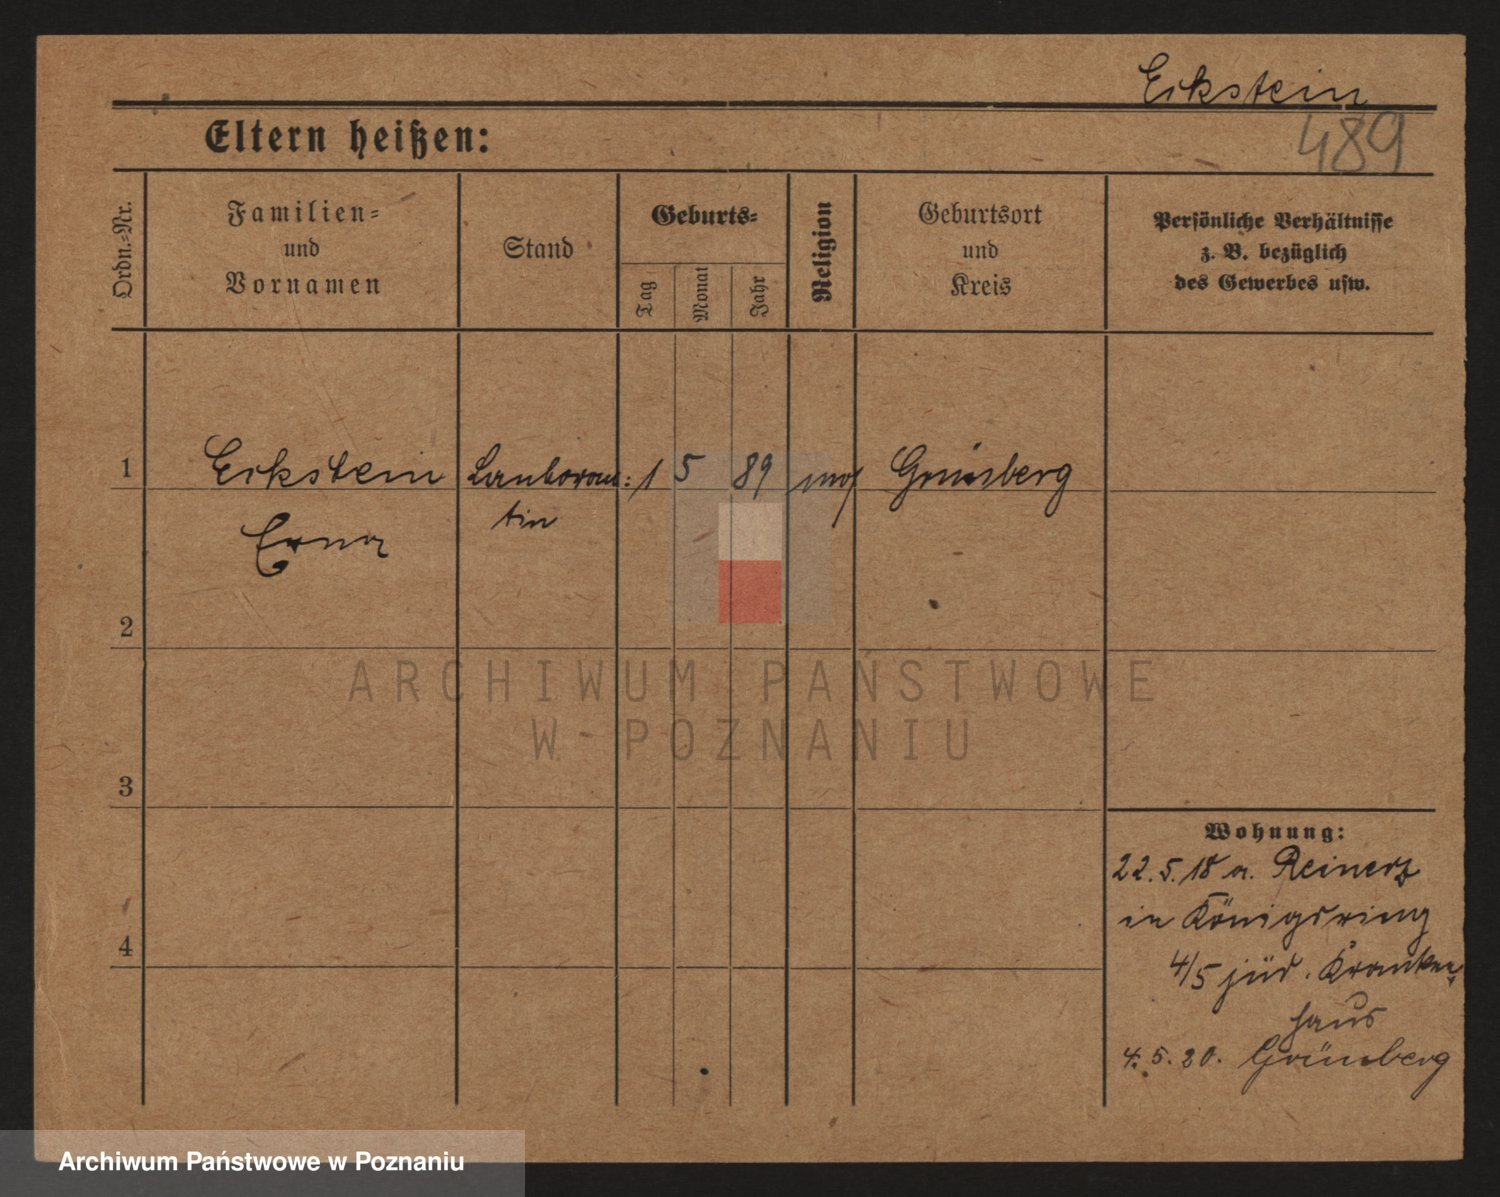 Eckstein
Eltern heißen:
489
Ordn.-Nr.
Familien-
und
Vornamen
Stand
Geburts-
Tag
Monat
Jahr
Religion
Geburtsort
und
Kreis
Persönliche Verhältnisse
z. B. bezüglich
des Gewerbes usw.
1
Eckstein
Laboran:
1
5
89
mos
Grünberg
Erna
tin
2
ARCHIWUM PAŃSTWOWE
W POZNANIU
3
Wohnung:
22.5.18 a. Reinerz
in Königsring
4
4/5 jüd. Kranken-
haus
4.5.20. Grünberg
Archiwum Państwowe w Poznaniu